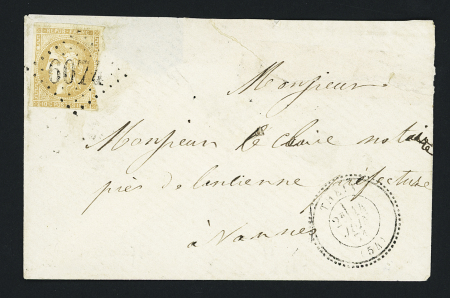 6074
Monsieur
Monsieur le claire notaire
près de l'ancienne préfecture
à Vannes